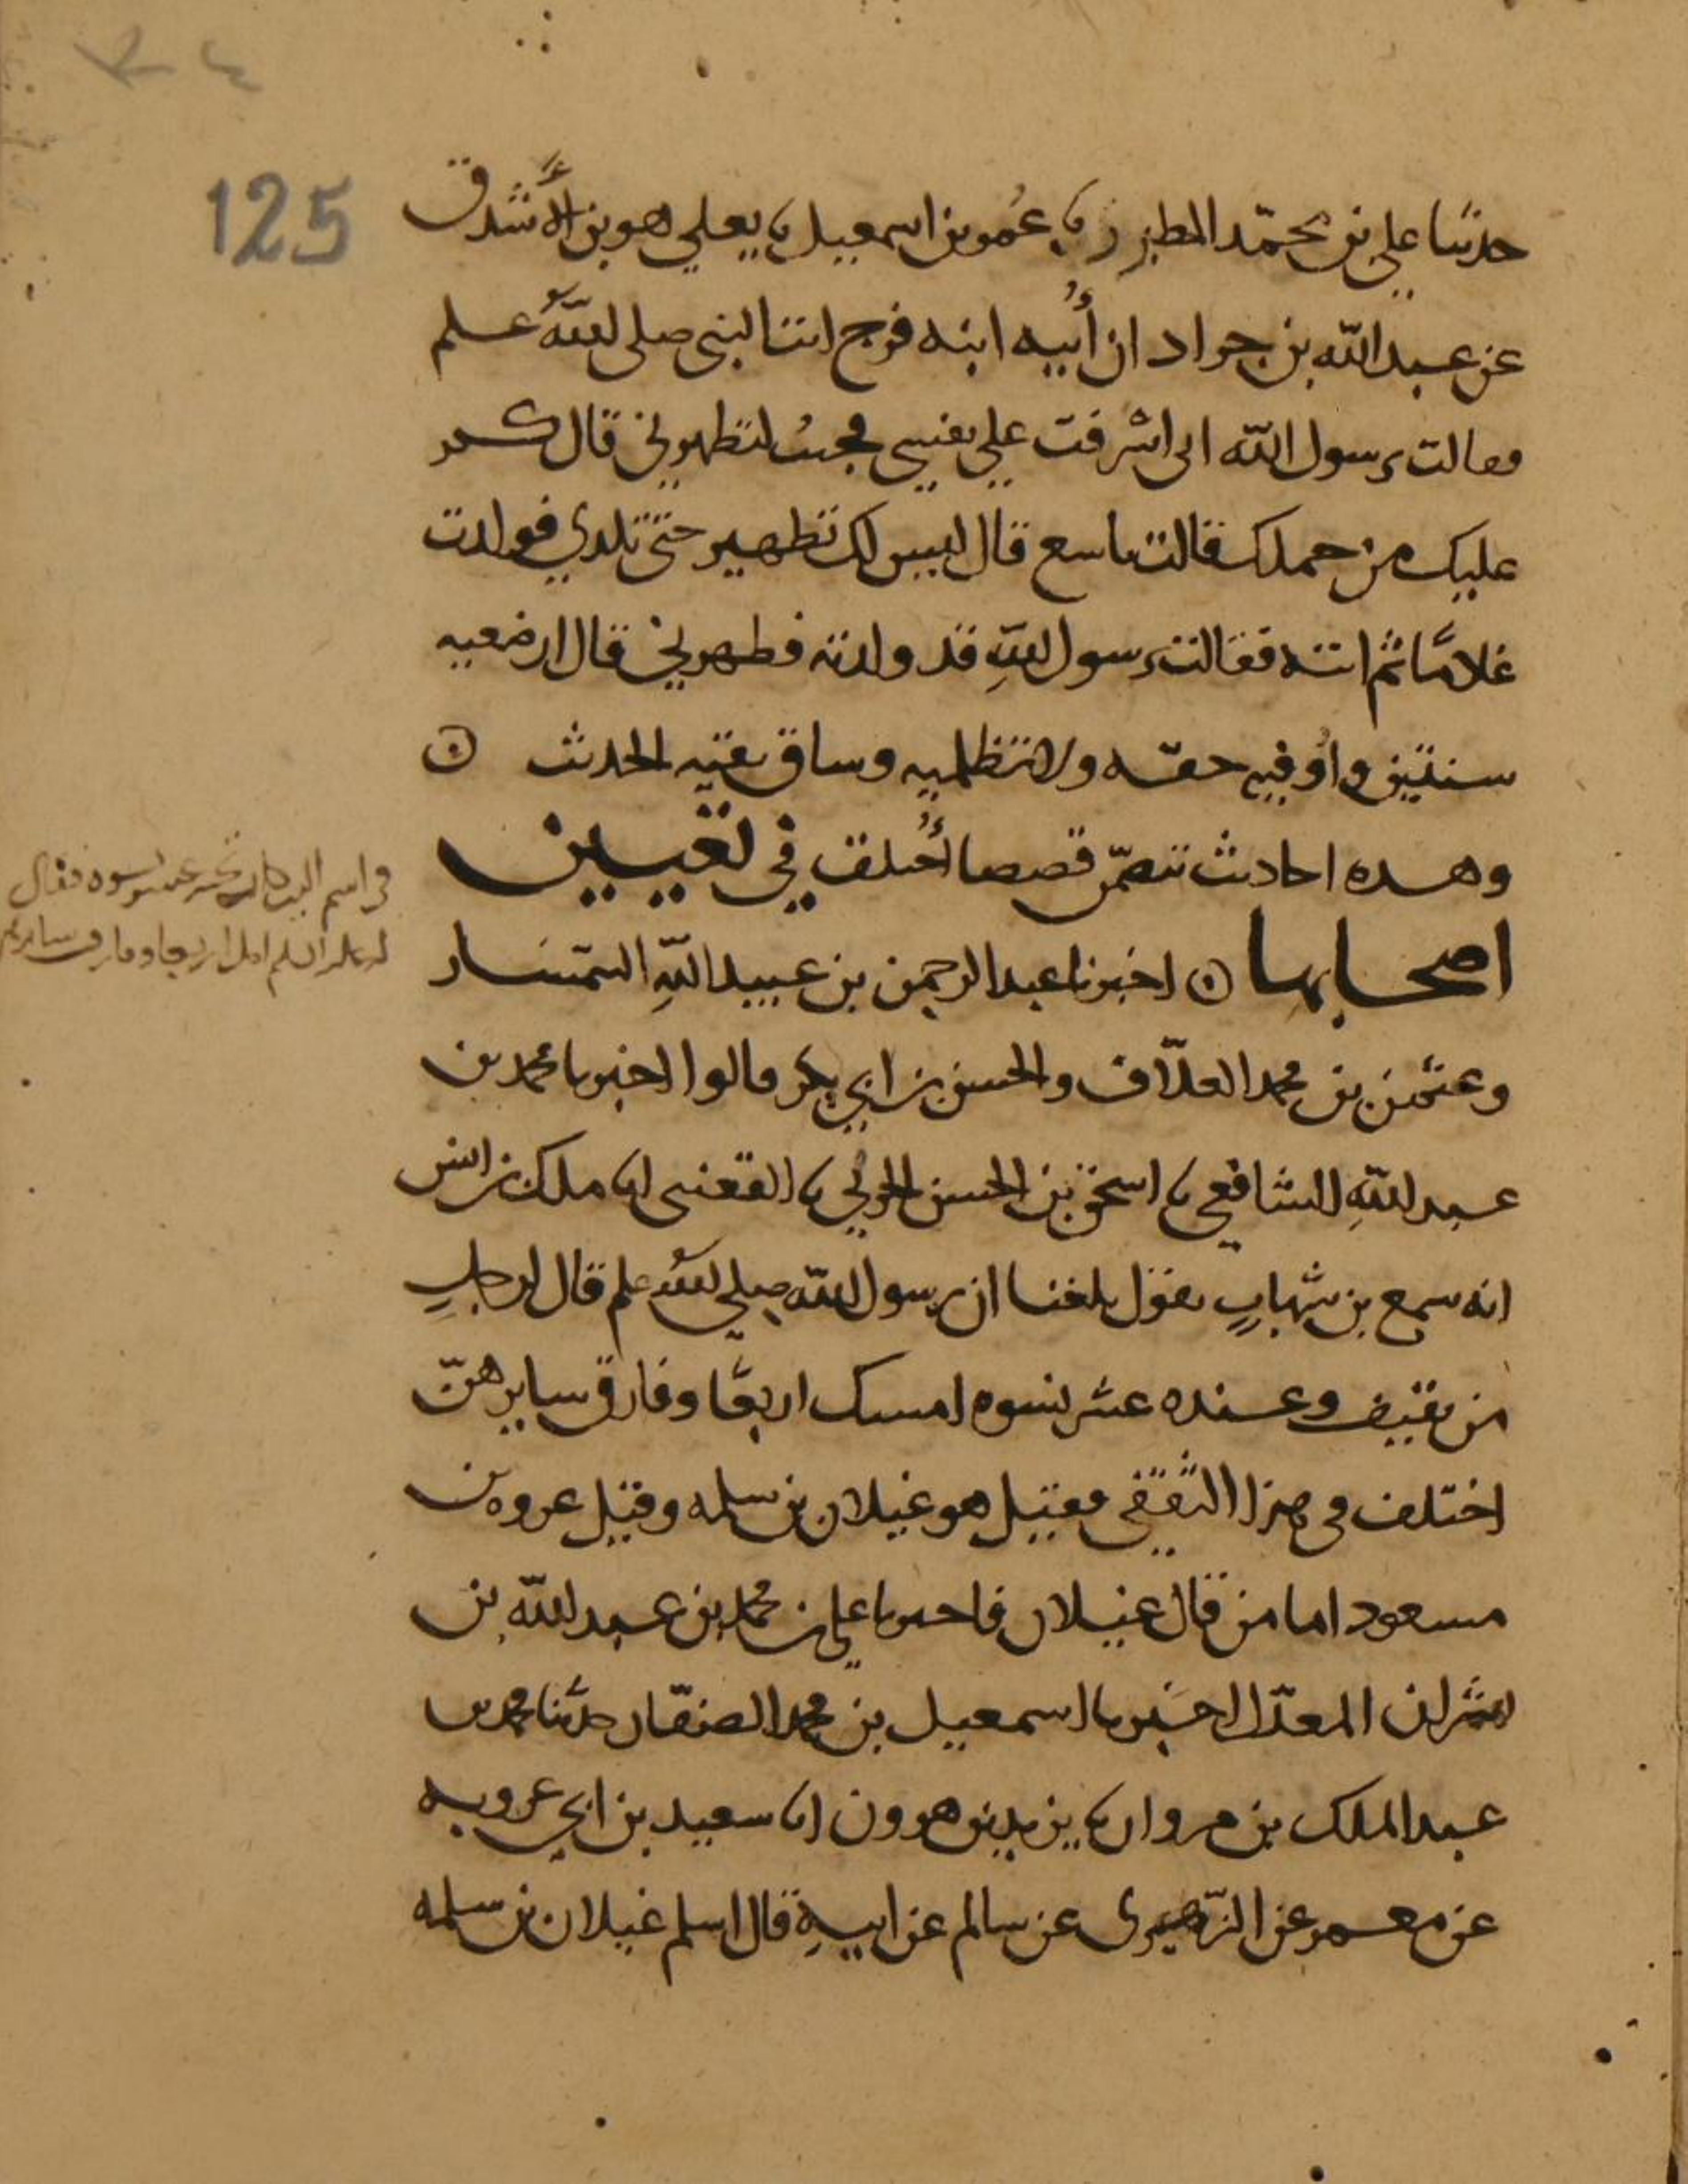 125
حدثنا علي بن محمد المطرز نا عمر بن اسمعيل نا يعلي هو بن الأشدق
عن عبد الله بن جراد ان أبيه ابنه فرج اتت النبي صلى الله علم
فقالت يرسول الله اني اشرفت علي نفسي فجيت لتطهرني قال كم
عليك من حملك فقالت تاسع قال ليس لك تطهير حتى تلدي فولدت
غلامًا ثم اتته فقالت يرسول الله قد ولدته فطهرني قال ارضعيه
سنتين واوفيه حقه ولا تظلميه وساق بقيه الحديث ۞
وهذه احاديث تتضمن قصصا أختلف في تعيين
اصحابها ۞ اخبرنا عبد الرحمن بن عبيد الله السمسار
وعثمن بن محمد العلاف والحسن بن ابي بكر قالوا اخبرنا محمد بن
عبد الله الشافعي نا اسحق بن الحسن الحربي نا القعنبي انا ملك بن انس
انه سمع بن شهاب يقول بلغنا ان رسول الله صلى الله علم قال لرجل
من ثقيف وعنده عشر نسوه امسك اربعًا وفارق سايرهن
اختلف في هذا الثقفي فقيل هو غيلان بن سلمه وقيل عروه بن
مسعود اما من قال غيلان فاخبرنا علي بن محمد بن عبد الله بن
بشران المعدل اخبرنا اسمعيل بن محمد الصفار حدثنا محمد بن
عبد الملك بن مروان نا يزيد بن هرون انا سعيد بن ابي عروبه
عن معمر عن الزهري عن سالم عن ابيه قال اسلم غيلان بن سلمه
في اسم الذي كان تحته عشر نسوه فقال
له النبي امسك اربعا وفارق سايرهن